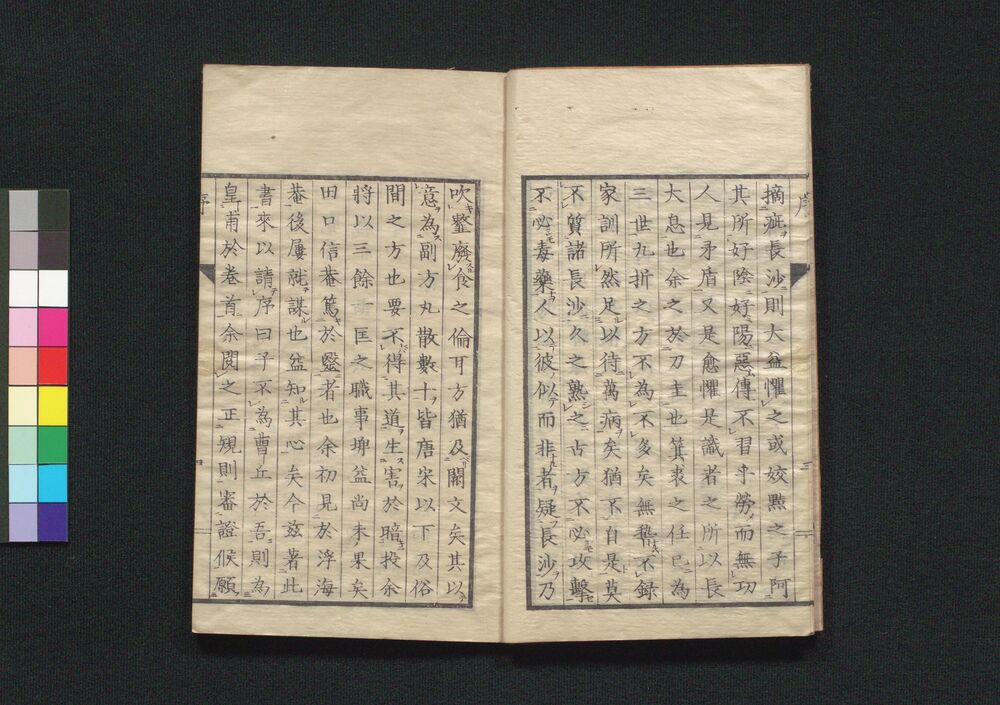 摘疵長沙則大益懼之或姣黠之子阿
其所好陰好陽惡傳不習乎勞而無功
人見矛盾又是愈懼是識者之所以長
大息也余之於刀圭也箕裘之任已為
三世九折之方不為不多矣無稽不録
家訓所然足以待萬病矣猶不自是莫
不質諸長沙久之熟之古方不必攻擊
不必毒藥人以彼似而非者疑長沙乃
吹韲廢食之倫耳方猶及闕文矣其以
意為副方丸散數十皆唐宋以下及俗
間之方也要不得其道生害於暗投余
將以三餘 匡之職事埤益尚未果矣
田口信菴篤於毉者也余初見於浮海
菴後屢就謀也益知其心矣今玆著此
書來以請序曰子不為曹丘於吾則為
皇甫於卷首余閲之正規則審證候願
序
三
序
四